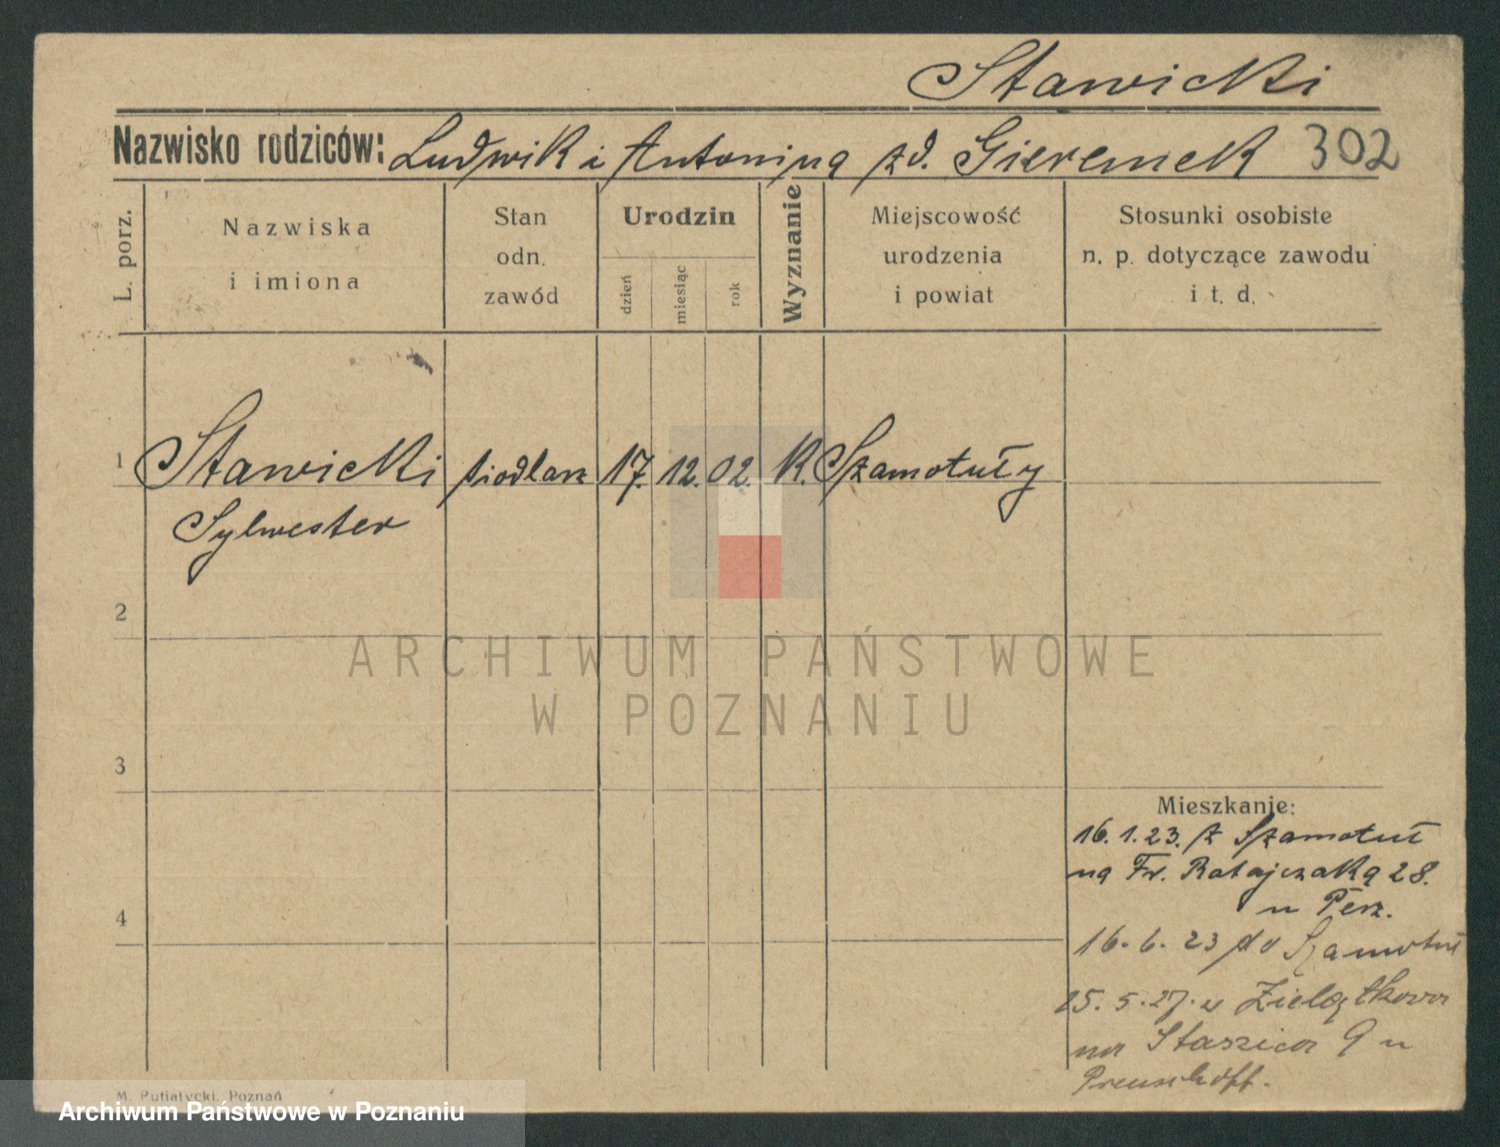 Stawicki
Nazwisko rodziców: Ludwik i Antonina zd. Gieremek 302
L. porz.
Nazwiska
i imiona
Stan
odn.
zawód
Urodzin
dzień
miesiąc
rok
Wyznanie
Miejscowość
urodzenia
i powiat
Stosunki osobiste
n. p. dotyczące zawodu
i t. d.
1 Stawicki siodlarz 17. 12. 02. K. Szamotuły
Sylwester
2
3
4
Mieszkanie:
16. 1. 23. z Szamotuł
na Fr. Ratajczaka 28.
u Perz.
16. 6. 23 do Szamotuł
25. 5. 27. z Zielątkowa
na Staszica 9 u
Preuschoff.
ARCHIWUM PAŃSTWOWE
W POZNANIU
M. Putiatycki, Poznań
Archiwum Państwowe w Poznaniu